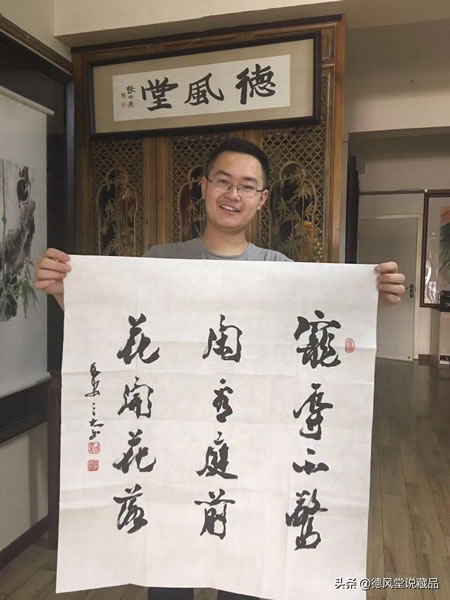 德風堂
寵辱不驚
閑看庭前
花開花落
头条 @德风堂说藏品